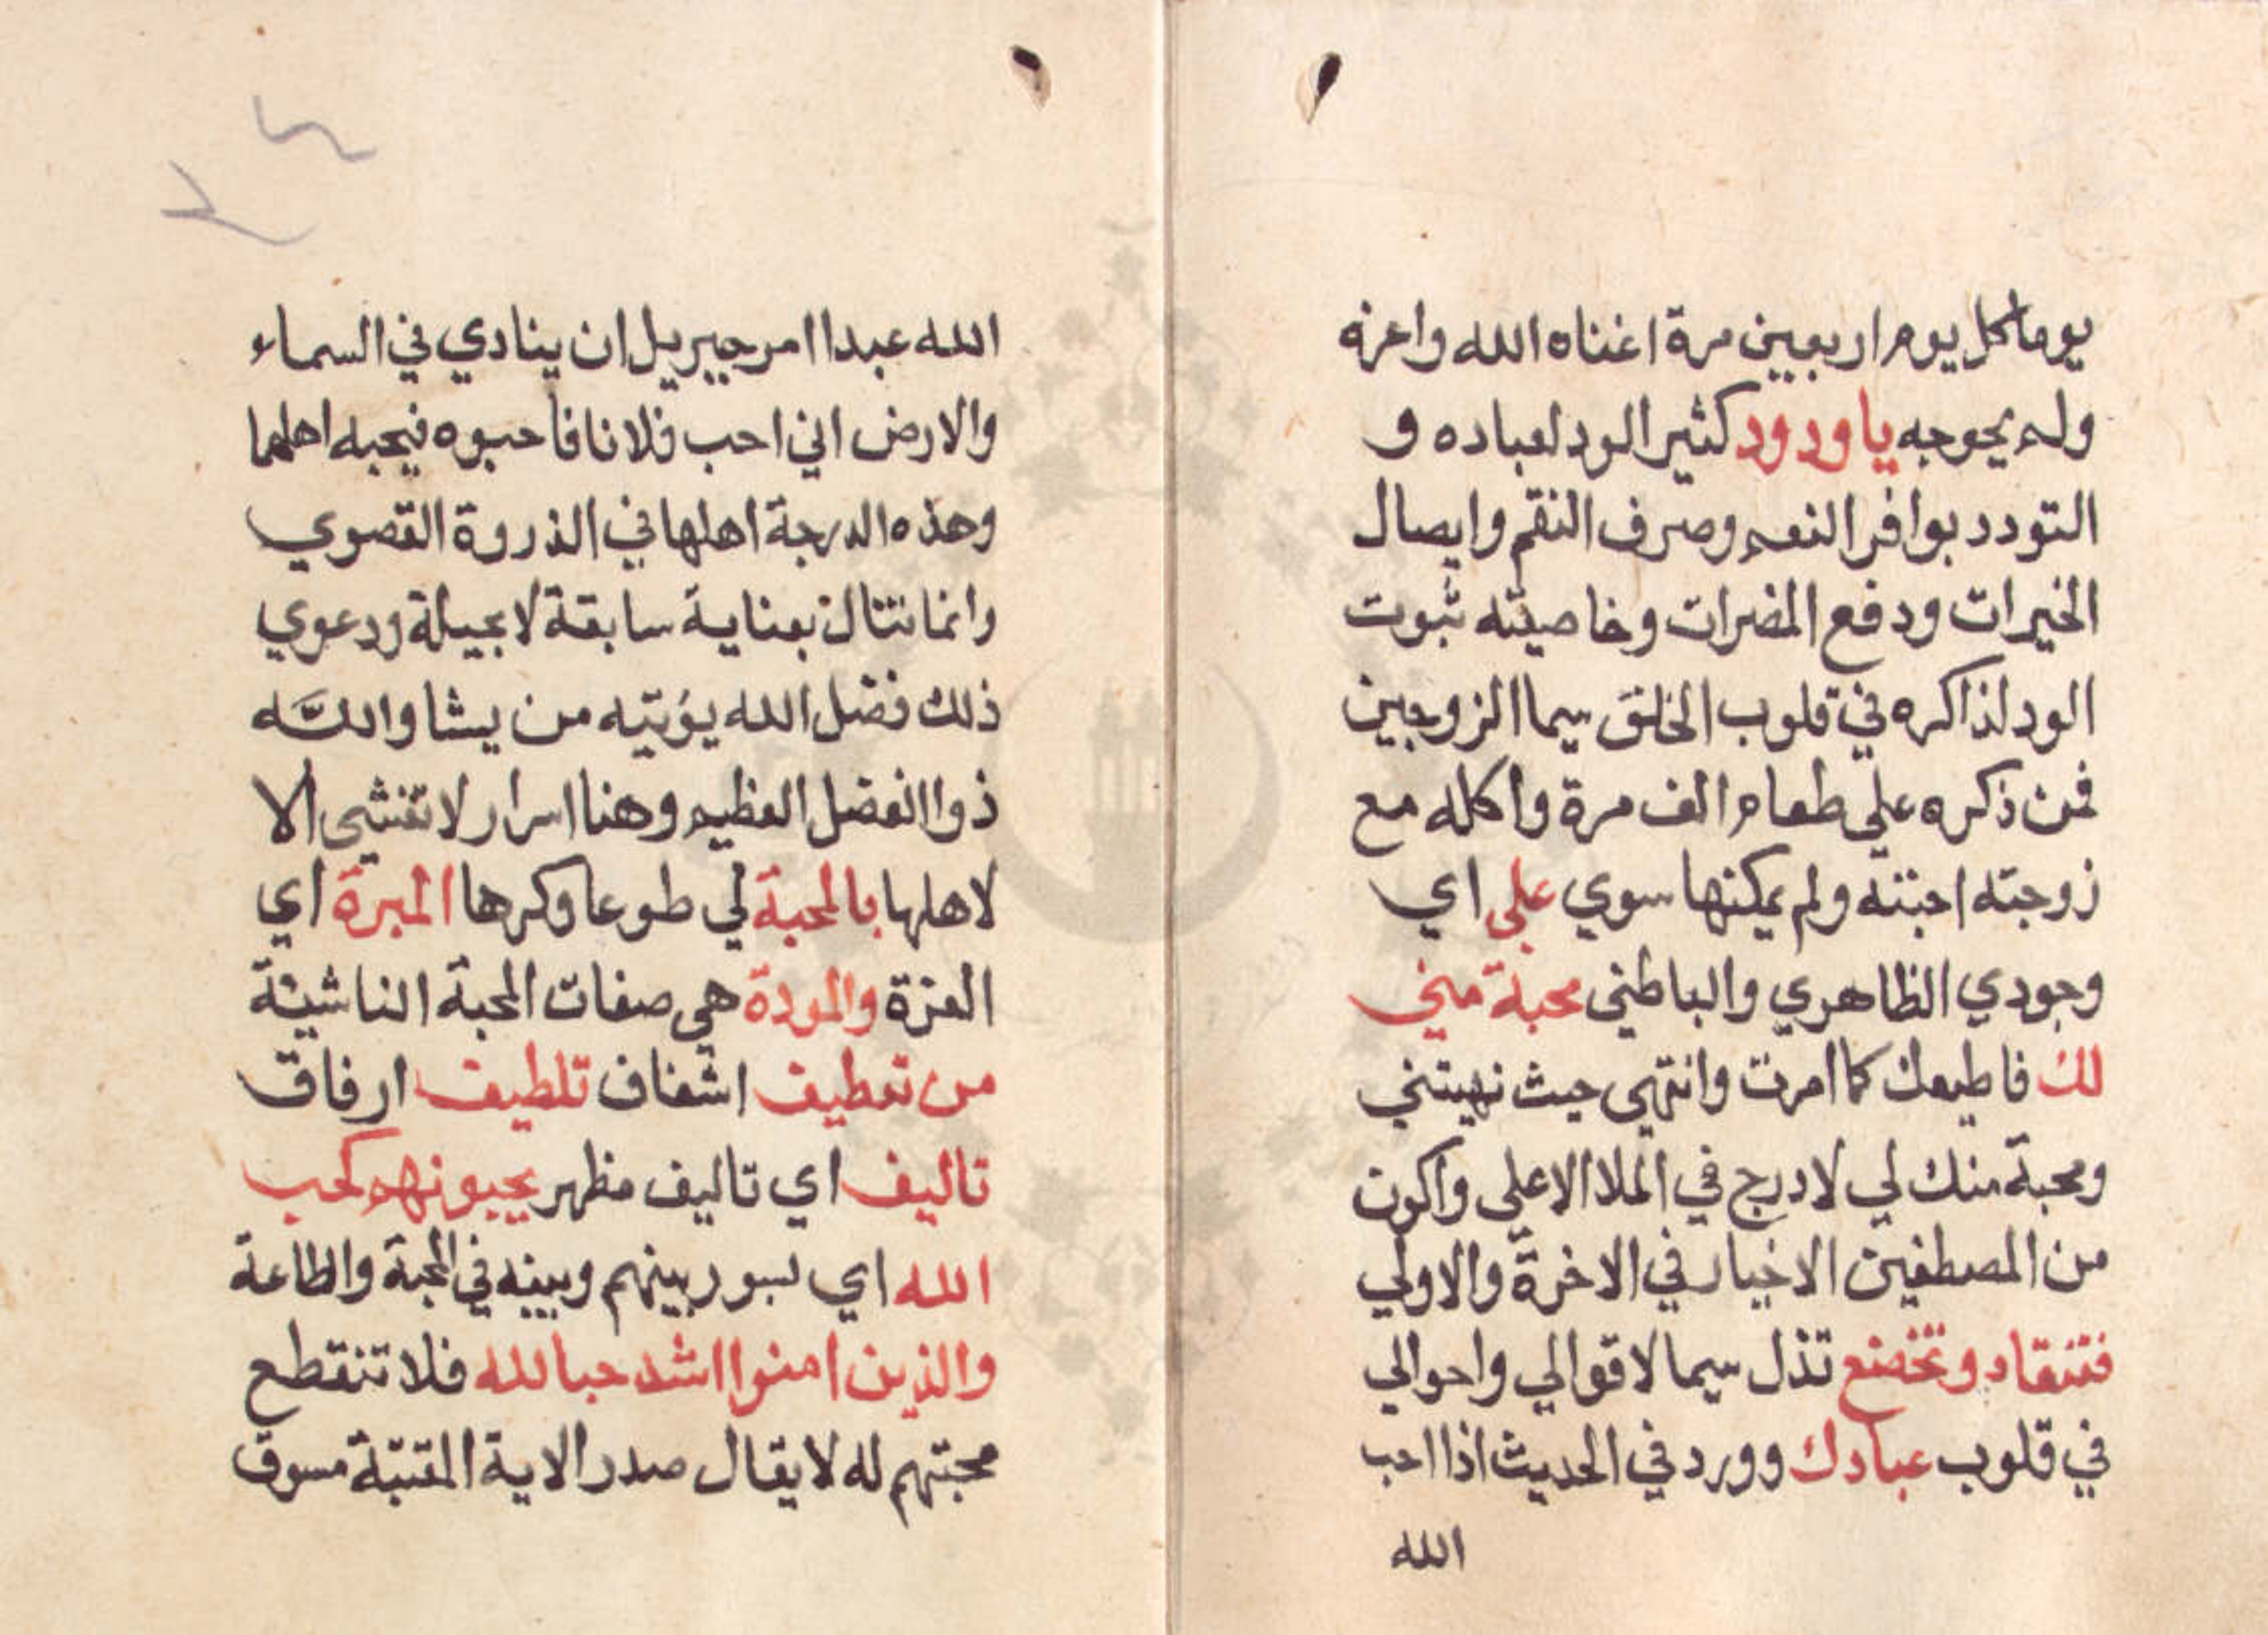 يوما كل يوم اربعين مرة اغناه الله واعزه
ولم يحوجه يا ودود كثير الود لعباده و
التودد بوافر النعم وصرف النقم وايصال
الخيرات ودفع المضرات وخاصيته ثبوت
الود لذاكره في قلوب الخلق سيما الزوجين
فمن ذكره علي طعام الف مرة واكله مع
زوجته احبته ولم يمكنها سوي علي اي
وجودي الظاهري والباطني محبة مني
لك فاطيعك كما امرت وانتهي حيث نهيتني
ومحبة منك لي لادرج في الملا الاعلي واكون
من المصطفين الاخيار في الاخرة والاولي
فتنقاد وتخضع تذل سيما لاقوالي واحوالي
في قلوب عبادك وورد في الحديث اذا احب
الله
الله عبدا امر جبريل ان ينادي في السماء
والارض اني احب فلانا فاحبوه فيحبه اهلهما
وهذه الدرجة اهلها في الذروة القصوي
وانما تنال بعناية سابقة لا بحيلة ودعوي
ذلك فضل الله يؤتيه من يشا واللَّه
ذوا الفضل العظيم وهنا اسرار لا تفشي الا
لاهلها بالمحبة لي طوعا وكرها المبرة اي
العزة والمودة هي صفات المحبة الناشية
من تعطيف اشفاف تلطيف ارفاق
تاليف اي تاليف مظهر يحبونهم كحب
الله اي يسوو بينهم وبينه في المحبة والطاعة
والذين امنوا اشد حبا لله فلا تنقطع
محبتهم له لا يقال صدر الاية المقتبة مسوق